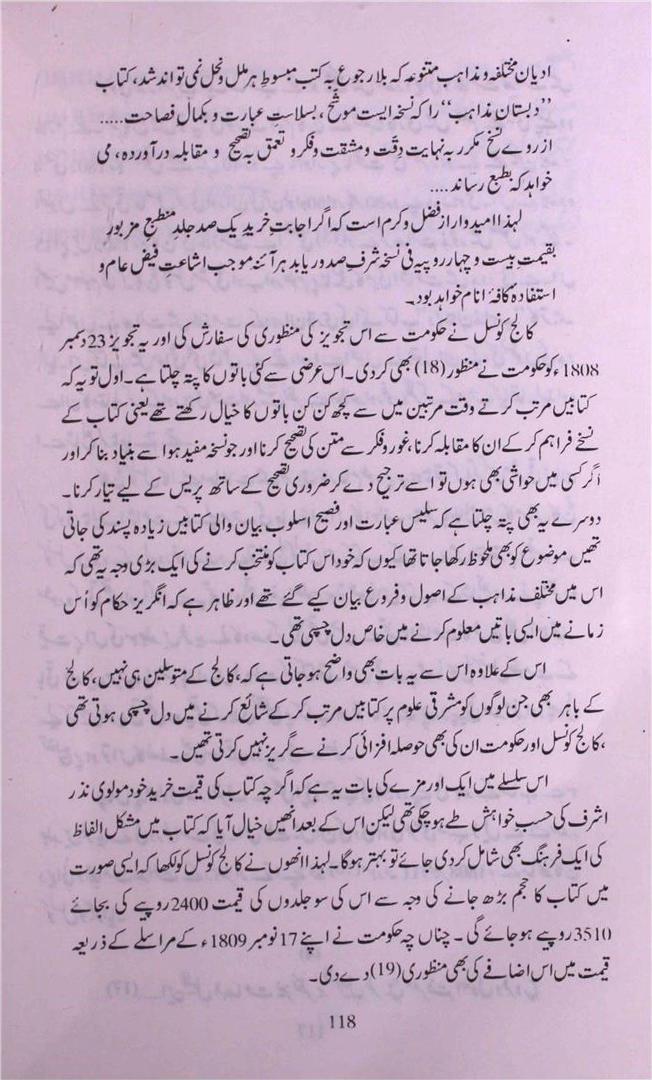 ادیان مختلفہ و مذاہب متنوعہ کہ بلا رجوع بہ کتب مبسوطِ ہر ملل و نحل نمی تواند شد، کتاب
”دبستان مذاہب“ را کہ نسخہ ایست موشّح، بسلاستِ عبارت و بکمالِ فصاحت.....
از روے نسخ مکرر بہ نہایت وقت و مشقت و فکر و تعمق بہ تصحیح و مقابلہ در آوردہ، می
خواہد کہ بطبع رساند....
لہٰذا امیدوار از فضل و کرم است کہ اگر اجابتِ خرید یک صد جلد منطبع مزبور
بقیمت بیست و چہار روپیہ فی نسخہ شرف صدور یابد ہر آئنہ موجب اشاعتِ فیض عام و
استفادہ کافۂ انام خواہد بود۔
کالج کونسل نے حکومت سے اس تجویز کی منظوری کی سفارش کی اور یہ تجویز 23 دسمبر
1808ء کو حکومت نے منظور (18) بھی کر دی۔ اس عرضی سے کئی باتوں کا پتہ چلتا ہے۔ اول تو یہ کہ
کتابیں مرتب کرتے وقت مرتبین میں سے کچھ کن کن باتوں کا خیال رکھتے تھے یعنی کتاب کے
نسخے فراہم کر کے ان کا مقابلہ کرنا، غور و فکر سے متن کی تصحیح کرنا اور جو نسخہ مفید ہو اسے بنیاد بنا کر اور
اگر کسی میں حواشی بھی ہوں تو اسے ترجیح دے کر ضروری تصحیح کے ساتھ پریس کے لیے تیار کرنا۔
دوسرے یہ بھی پتہ چلتا ہے کہ سلیس عبارت اور فصیح اسلوب بیان والی کتابیں زیادہ پسند کی جاتی
تھیں موضوع کو بھی ملحوظ رکھا جاتا تھا کیوں کہ خود اس کتاب کو منتخب کرنے کی ایک بڑی وجہ یہ تھی کہ
اس میں مختلف مذاہب کے اصول و فروع بیان کیے گئے تھے اور ظاہر ہے کہ انگریز حکام کو اُس
زمانے میں ایسی باتیں معلوم کرنے میں خاص دل چسپی تھی۔
اس کے علاوہ اس سے یہ بات بھی واضح ہو جاتی ہے کہ، کالج کے متوسلین ہی نہیں، کالج
کے باہر بھی جن لوگوں کو مشرقی علوم پر کتابیں مرتب کر کے شائع کرنے میں دل چسپی ہوتی تھی
، کالج کونسل اور حکومت ان کی بھی حوصلہ افزائی کرنے سے گریز نہیں کرتی تھیں۔
اس سلسلے میں ایک اور مزے کی بات یہ ہے کہ اگرچہ کتاب کی قیمت خرید خود مولوی نذر
اشرف کی حسب خواہش طے ہو چکی تھی لیکن اس کے بعد انھیں خیال آیا کہ کتاب میں مشکل الفاظ
کی ایک فرہنگ بھی شامل کر دی جائے تو بہتر ہوگا۔ لہٰذا انھوں نے کالج کونسل کو لکھا کہ ایسی صورت
میں کتاب کا حجم بڑھ جانے کی وجہ سے اس کی سو جلدوں کی قیمت 2400 روپیے کی بجائے
3510 روپیے ہو جائے گی۔ چناں چہ حکومت نے اپنے 17 نومبر 1809ء کے مراسلے کے ذریعہ
قیمت میں اس اضافے کی بھی منظوری (19) دے دی۔
118